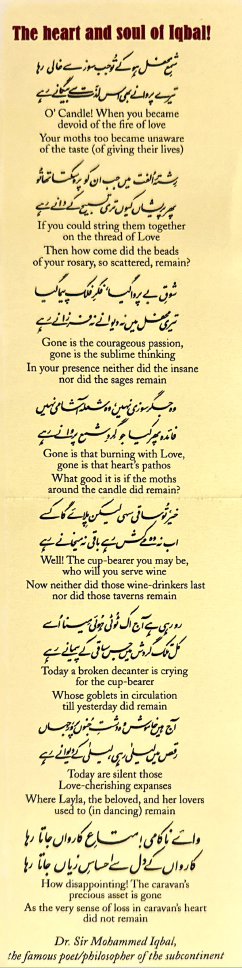 The heart and soul of Iqbal!
شمع محفل ہو کے تُو جب سوز سے خالی رہا
تیرے پروانے بھی اس لذت سے بیگانے رہے
O' Candle! When you became
devoid of the fire of love
Your moths too became unaware
of the taste (of giving their lives)
رشتۂ الفت میں جب ان کو پرو سکتا تھا تو
پھر پریشاں کیوں تری تسبیح کے دانے رہے
If you could string them together
on the thread of Love
Then how come did the beads
of your rosary, so scattered, remain?
شوق بے پروا گیا، فکر فلک پیما گیا
تیری محفل میں نہ دیوانے نہ فرزانے رہے
Gone is the courageous passion,
gone is the sublime thinking
In your presence neither did the insane
nor did the sages remain
وہ جگر سوزی نہیں، وہ شعلہ آشامی نہیں
فائدہ پھر کیا جو گرد شمع پروانے رہے
Gone is that burning with Love,
gone is that heart's pathos
What good it is if the moths
around the candle did remain?
خیر تو ساقی سہی لیکن پلائے گا کسے
اب نہ وہ مے کش رہے باقی نہ میخانے رہے
Well! The cup-bearer you may be,
who will you serve wine
Now neither did those wine-drinkers last
nor did those taverns remain
رو رہی ہے آج اک ٹوٹی ہوئی مینا اسے
کل تلک گردش میں جس ساقی کے پیمانے رہے
Today a broken decanter is crying
for the cup-bearer
Whose goblets in circulation
till yesterday did remain
آج ہیں خاموش وہ دشت جنوں پرور جہاں
رقص میں لیلیٰ رہی، لیلیٰ کے دیوانے رہے
Today are silent those
Love-cherishing expanses
Where Layla, the beloved, and her lovers
used to (in dancing) remain
وائے ناکامی! متاع کارواں جاتا رہا
کارواں کے دل سے احساس زیاں جاتا رہا
How disappointing! The caravan's
precious asset is gone
As the very sense of loss in caravan's heart
did not remain
Dr. Sir Mohammed Iqbal,
the famous poet/philosopher of the subcontinent